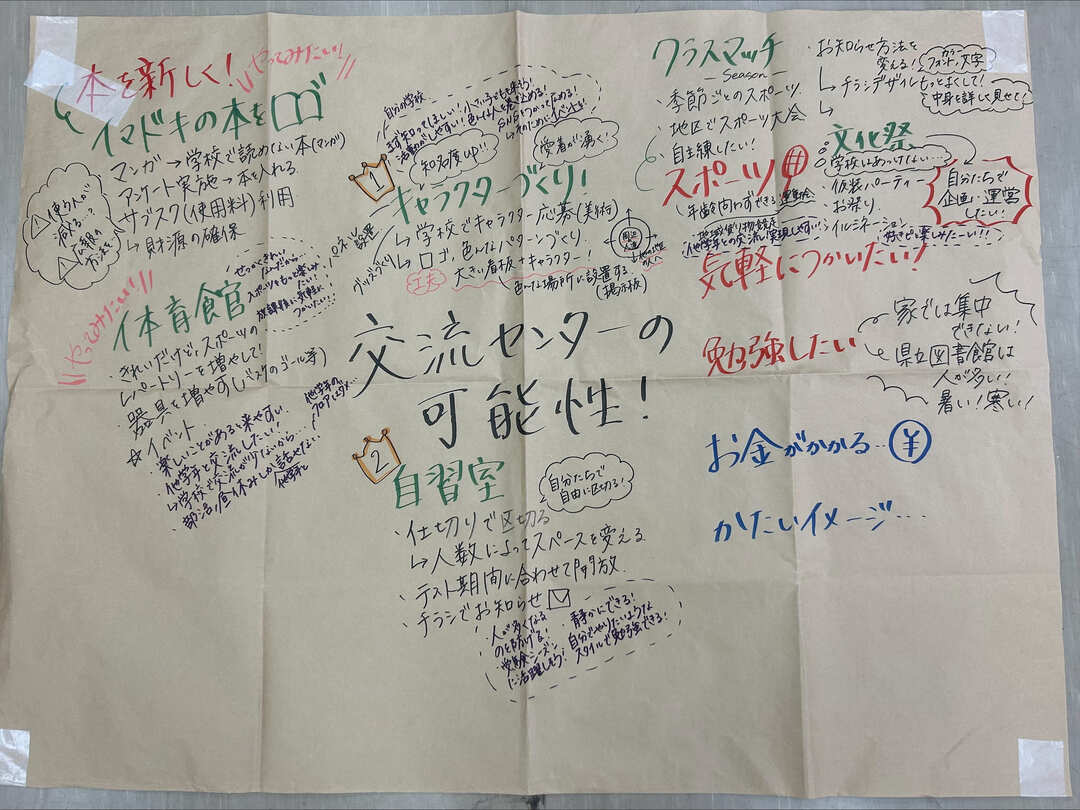 交流センターの
可能性!
本を新しく!
やってみたい!
イマドキの本を
マンガ→学校で読めない本(マンガ)
アンケート実施→本を入れる
サブスク(使用料)利用
↳財源の確保
使う人が
減る…?
広報の
方法を
やってみたい!
体育館
せっかくきれい
スポーツをもっと楽しみ
たい!
放課後に気軽に
つかいたい!
・きれいだけど、スポーツの
レパートリーを増やして!
・器具を増やす(バスケのゴール等)
☆イベント
・楽しいことがあると来やすい
・他学年と交流したい!
↳学校で交流が少ないから…
部活、昼休みしか話せない
他学年と
他学年の
フロアはダメ…
1
自分の学校
まず知ってほしい!
活動がしやすい!
知名度up!!
愛着が湧く!
キャラクターづくり!
↳学校でキャラクター応募(美術)
↳ロゴ、色んなパターンづくり
グッズづくり
パネル設置
工夫
大きい看板+キャラクター!
色んな場所に設置する
(掲示板)
周辺
人達
2
自習室
自分たちで
自由に区切る!
・仕切りで区切る
↳人数によってスペースを変える
・テスト期間に合わせて開放
・チラシでお知らせ
・人が多くなる
のを防げる!
・受験シーズン
に活躍しそう!
・静かにできる!
・自分でやりたいような
スタイルで勉強できる!
クラスマッチ
—Season—
・季節ごとのスポーツ
・地区でスポーツ大会
・自主練したい!
スポーツ
(年齢問わずできる運動会
他学年との交流が実現しやすい
・お知らせ方法を
変える!
カラー
フォント、文字
↳チラシデザインもっとよくして!
中身を詳しく見せて!
↳
文化祭
学校じゃあっけない…
・仮装パーティー
・お祭り
・イルミネーション
好きに楽しみたーい!!
自分たちで
企画・運営
したい!
気軽につかいたい!
勉強したい
家では集中
できない!
県立図書館は
人が多い!
暑い!寒い!
お金がかかる…¥
かたいイメージ…